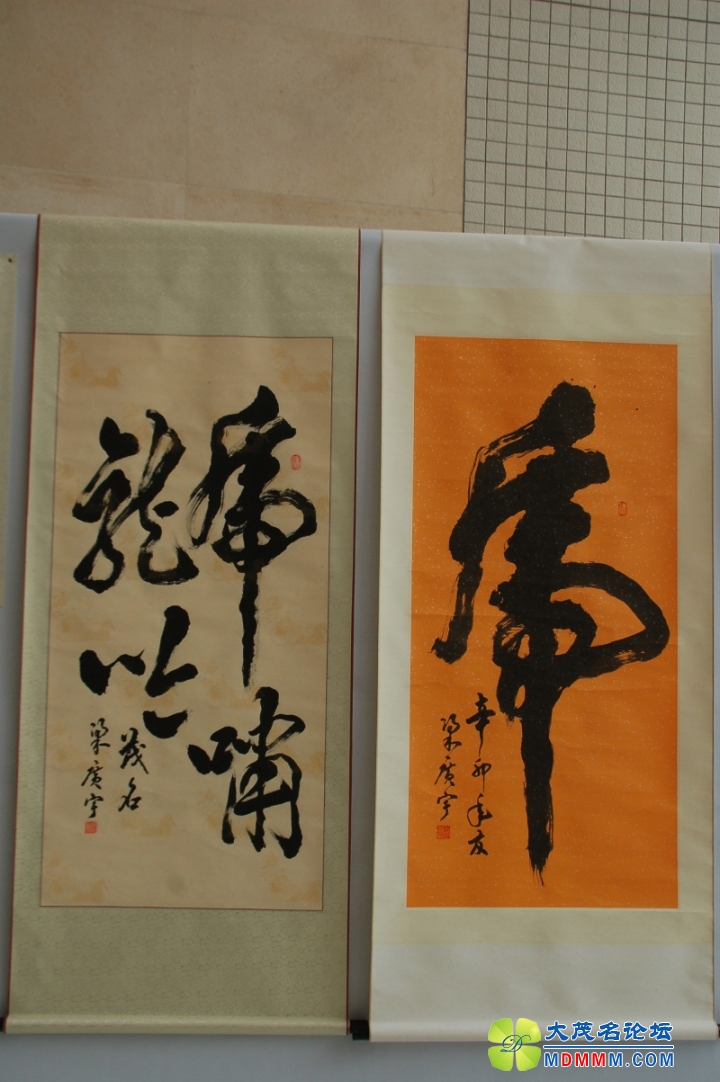 虎啸
龍吟
茂名
梁廣宇
虎
辛卯年友
梁廣宇
大茂名论坛
MDMMM.COM